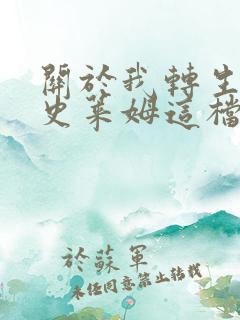 關於我轉生
史萊姆這檔
於蘇軍
未经同意禁止转载